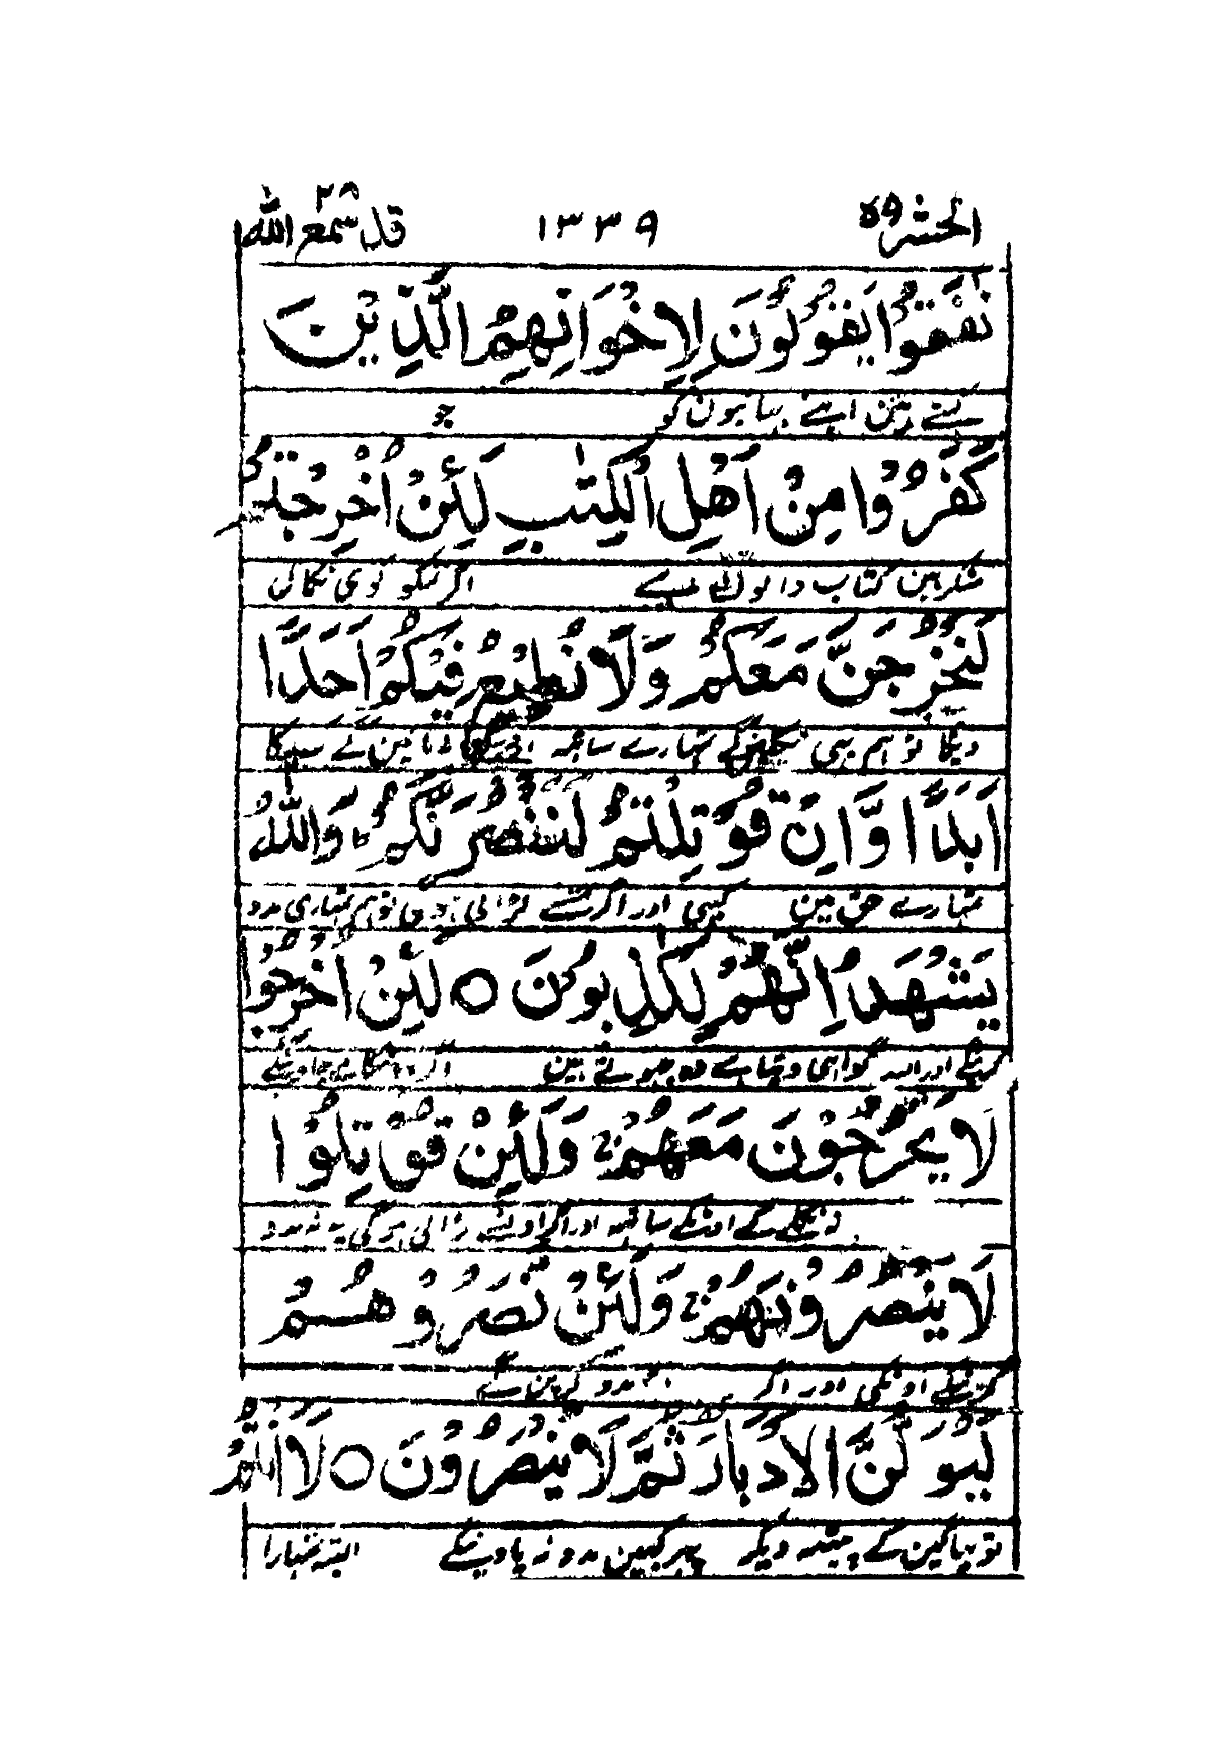 الحشر ٥٩ ١٣٣٩ قد سمع الله ٢٨
نَفَقُوْا يَقُوْلُوْنَ لِاِخْوَانِهِمُ الَّذِيْنَ
کہتے ہین اپنے بہائیون کو جو
كَفَرُوْا مِنْ اَهْلِ الْكِتٰبِ لَئِنْ اُخْرِجْتُمْ
منکر ہین کتاب والون مین سے اگر تمکو کوی نکال
لَنَخْرُجَنَّ مَعَكُمْ وَلَا نُطِيْعُ فِيْكُمْ اَحَدًا
دیگا تو ہم بہی نکلینگے تمہارے ساتہہ اور مانین گے کسیکا
اَبَدًا وَّاِنْ قُوْتِلْتُمْ لَنَنْصُرَنَّكُمْ وَاللّٰهُ
تمہارے حق مین کبہی اور اگر تمسے لڑائی ہوی تو ہم تمہاری مدد
يَشْهَدُ اِنَّهُمْ لَكٰذِبُوْنَ ○ لَئِنْ اُخْرِجُوْا
کرینگے اور اللہ گواہی دیتا ہے وہ جہوٹے ہین اگر وہ نکالے جاوینگے
لَا يَخْرُجُوْنَ مَعَهُمْ ۚ وَلَئِنْ قُوْتِلُوْا
نہ نکلینگے اونکے ساتہہ اور اگر اونسے لڑائی ہوگی یہ نہ مدد
لَا يَنْصُرُوْنَهُمْ ۚ وَلَئِنْ نَّصَرُوْهُمْ
کرینگے اونکی اور اگر مدد کرین گے
لَيُوَلُّنَّ الْاَدْبَارَ ثُمَّ لَا يُنْصَرُوْنَ ○ لَا اَنْتُمْ
تو بہاگین گے پیٹہہ دیکر پہر کہین مدد نہ پاوینگے البتہ تمہارا